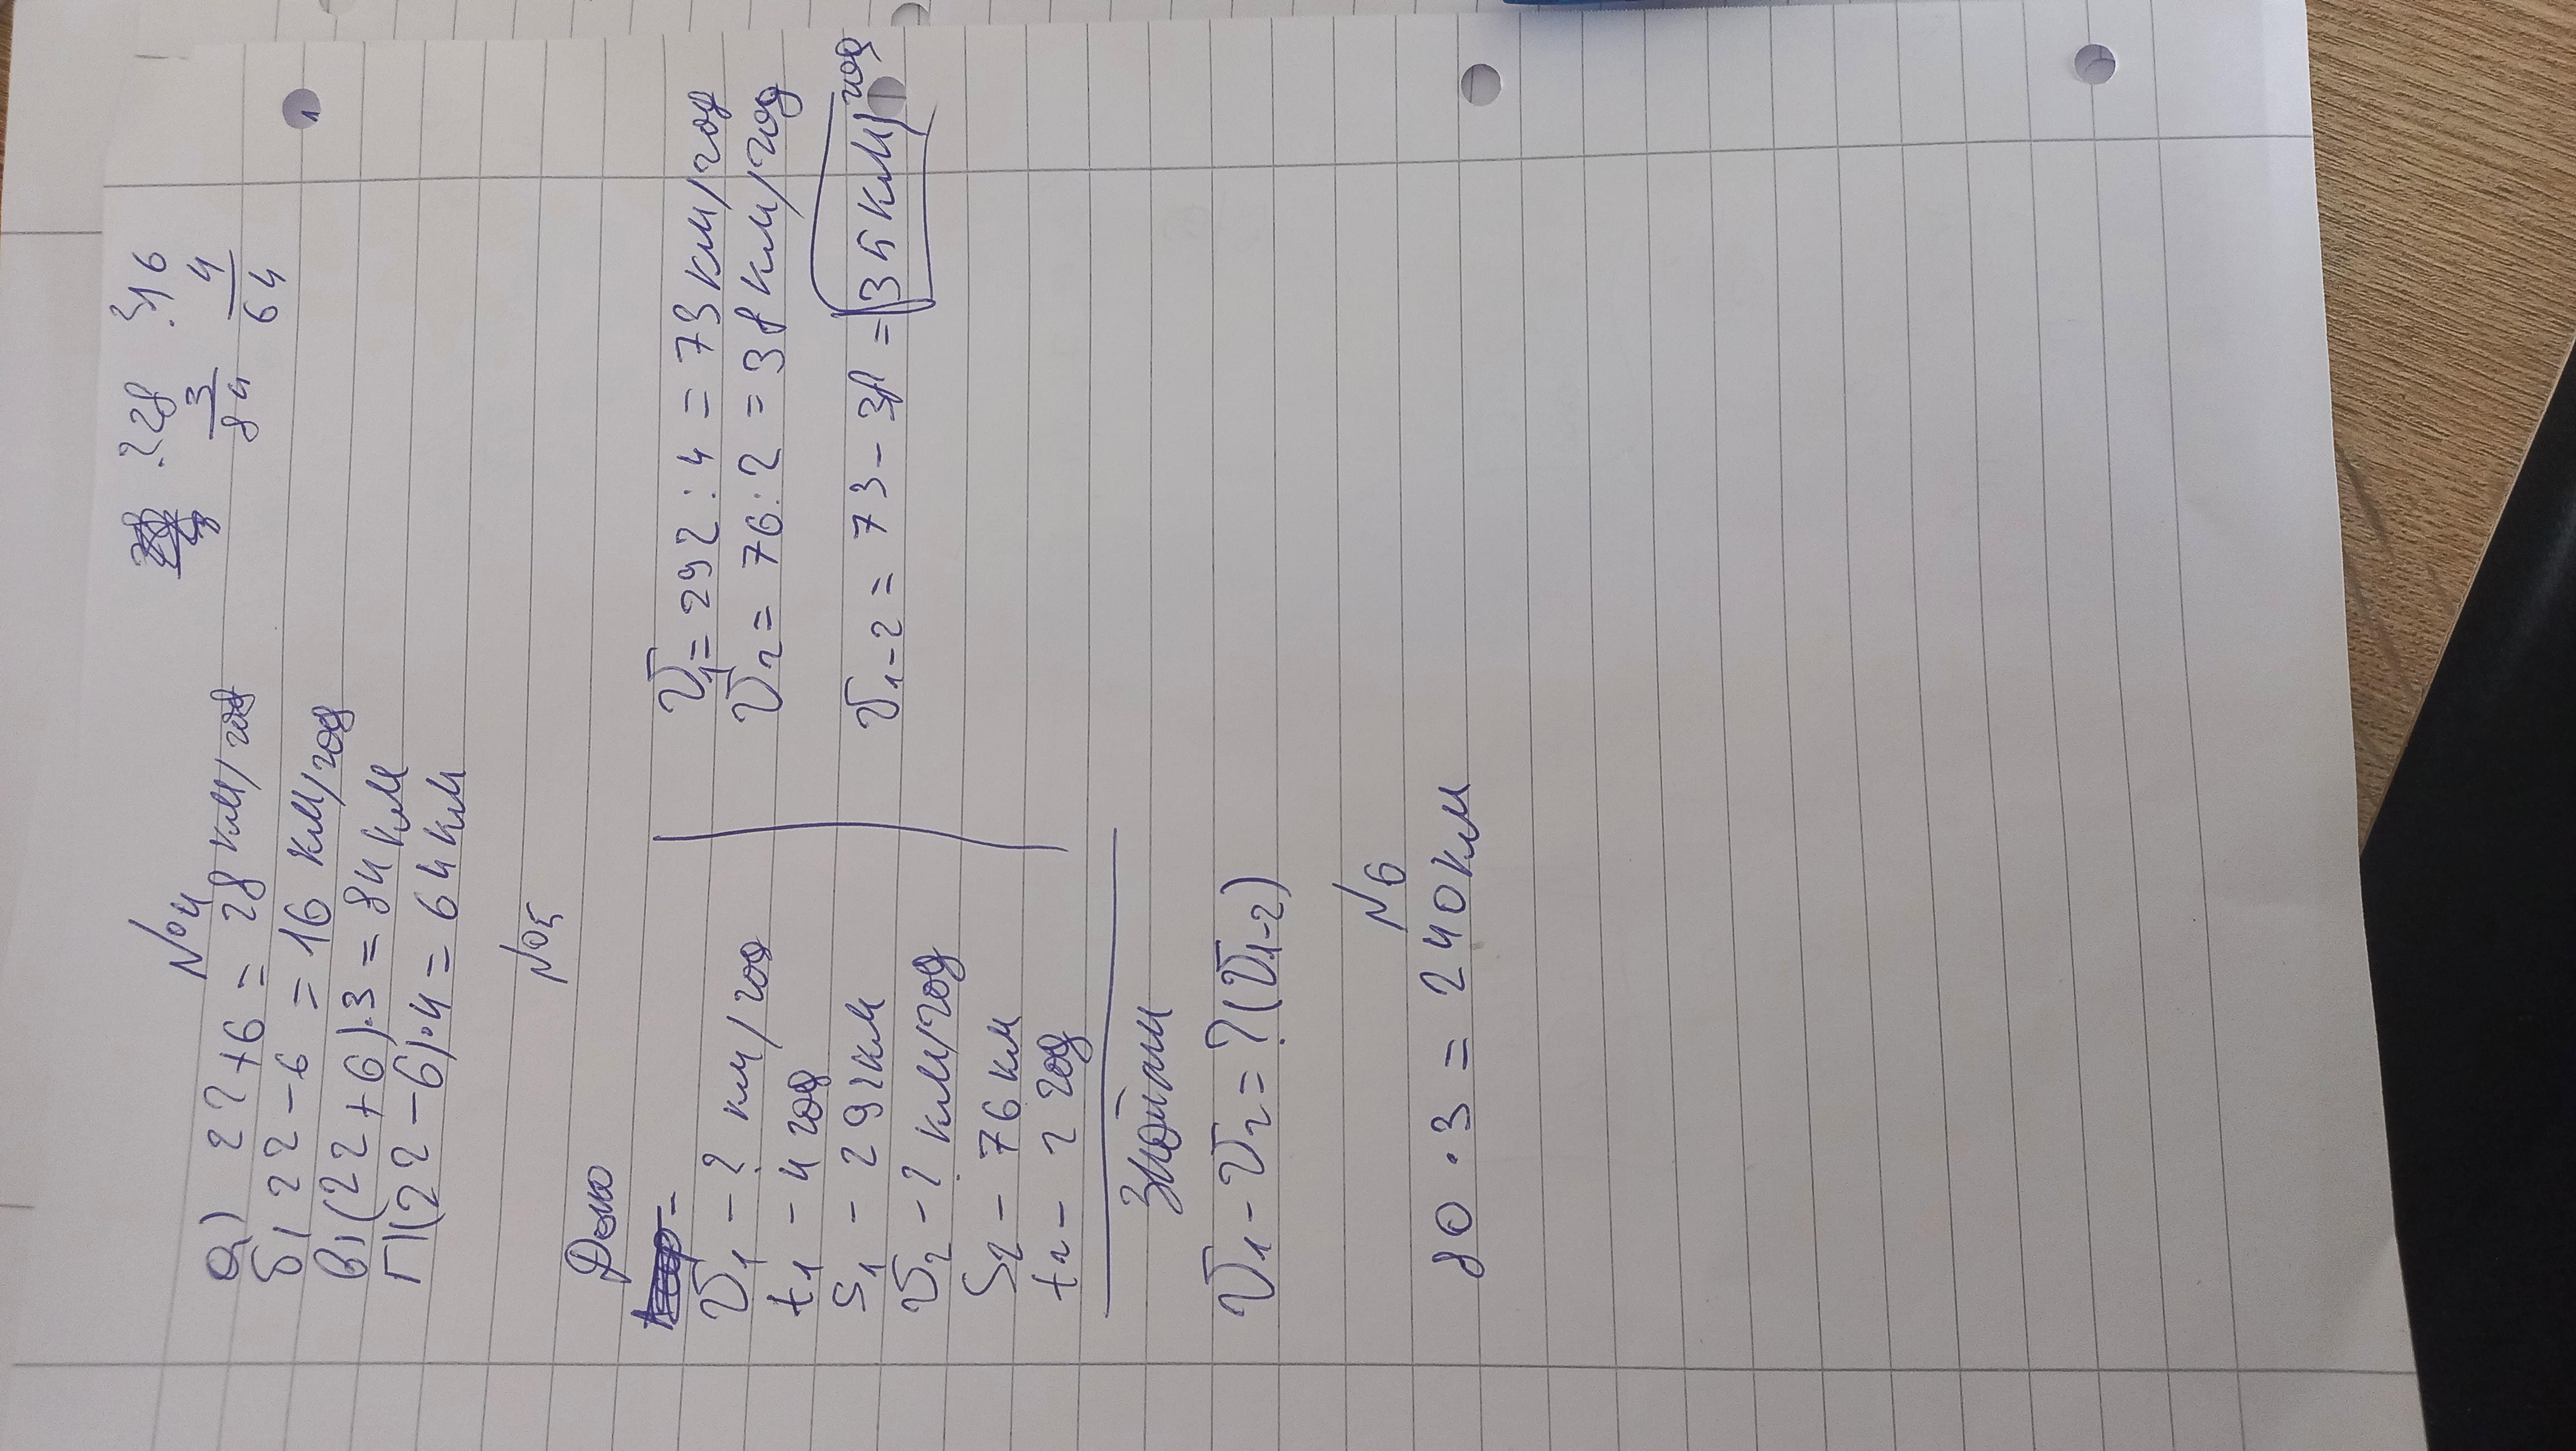 №4
а) 22+6 = 28 км/год
б) 22-6 = 16 км/год
в) (22+6)·3 = 84 км
г) (22-6)·4 = 64 км
.28
3
84
.16
4
64
№5
Дано
V1 - ? км/год
t1 - 4 год
S1 - 292км
V2 - ? км/год
S2 - 76 км
t2 - 2 год
Знайти
V1 - V2 = ? (V1-2)
V1 = 292 : 4 = 73 км/год
V2 = 76 : 2 = 38 км/год
V1-2 = 73 - 38 = 35 км/год
№6
80 · 3 = 240км